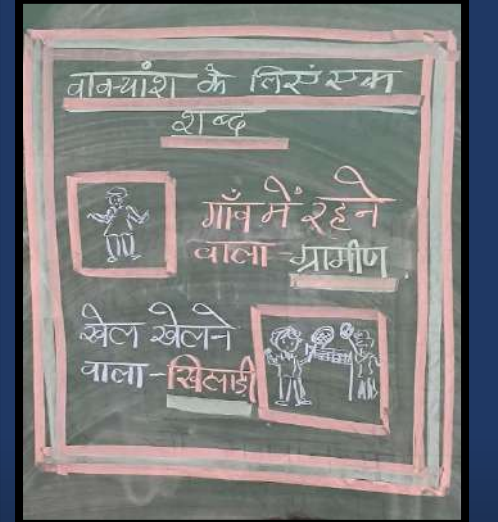 वाक्यांश के लिए एक
शब्द
गाँव में रहने
वाला - ग्रामीण
खेल खेलने
वाला - खिलाड़ी